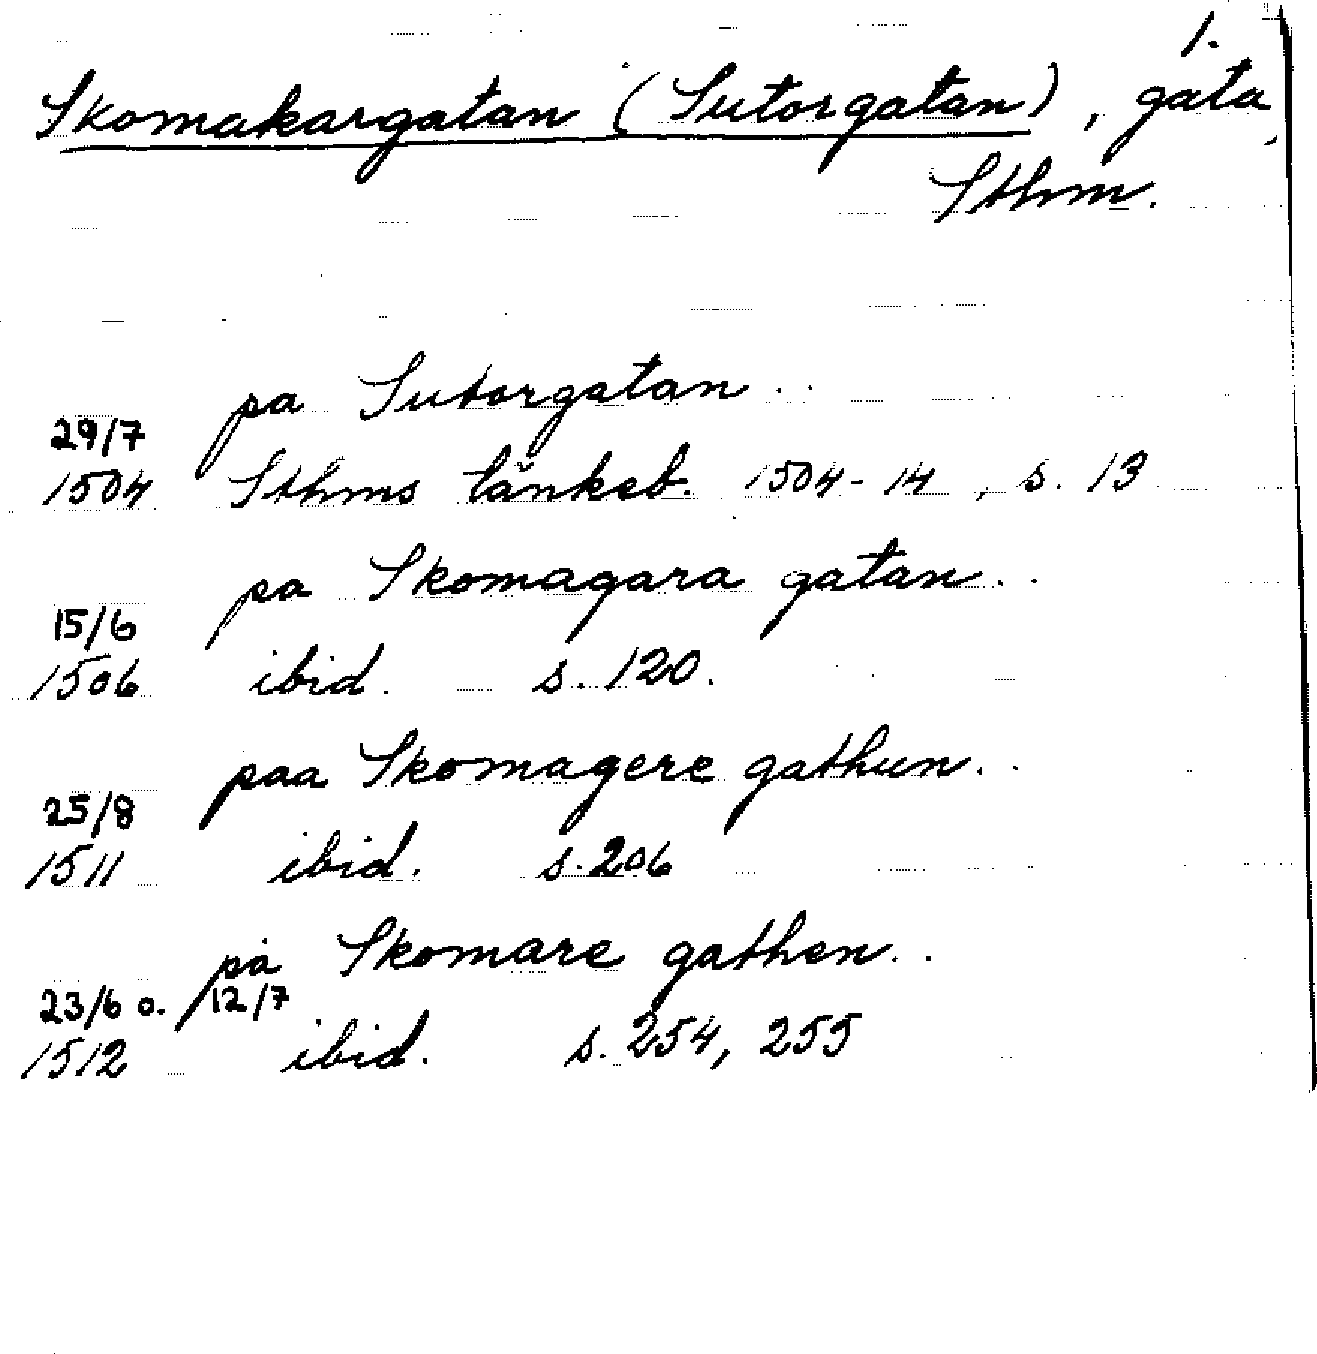 1.
Skomakargatan (Sutorgatan), gata,
Sthm.
pa Sutorgatan..
29/7
1504 Sthms tänkeb. 1504-14, s. 13
pa Skomagara gatan..
15/6
1506 ibid. s. 120.
paa Skomagere gathun..
25/8
1511 ibid. s. 206
på Skomare gathen..
23/6 o. 12/7
1512 ibid. s. 254, 255